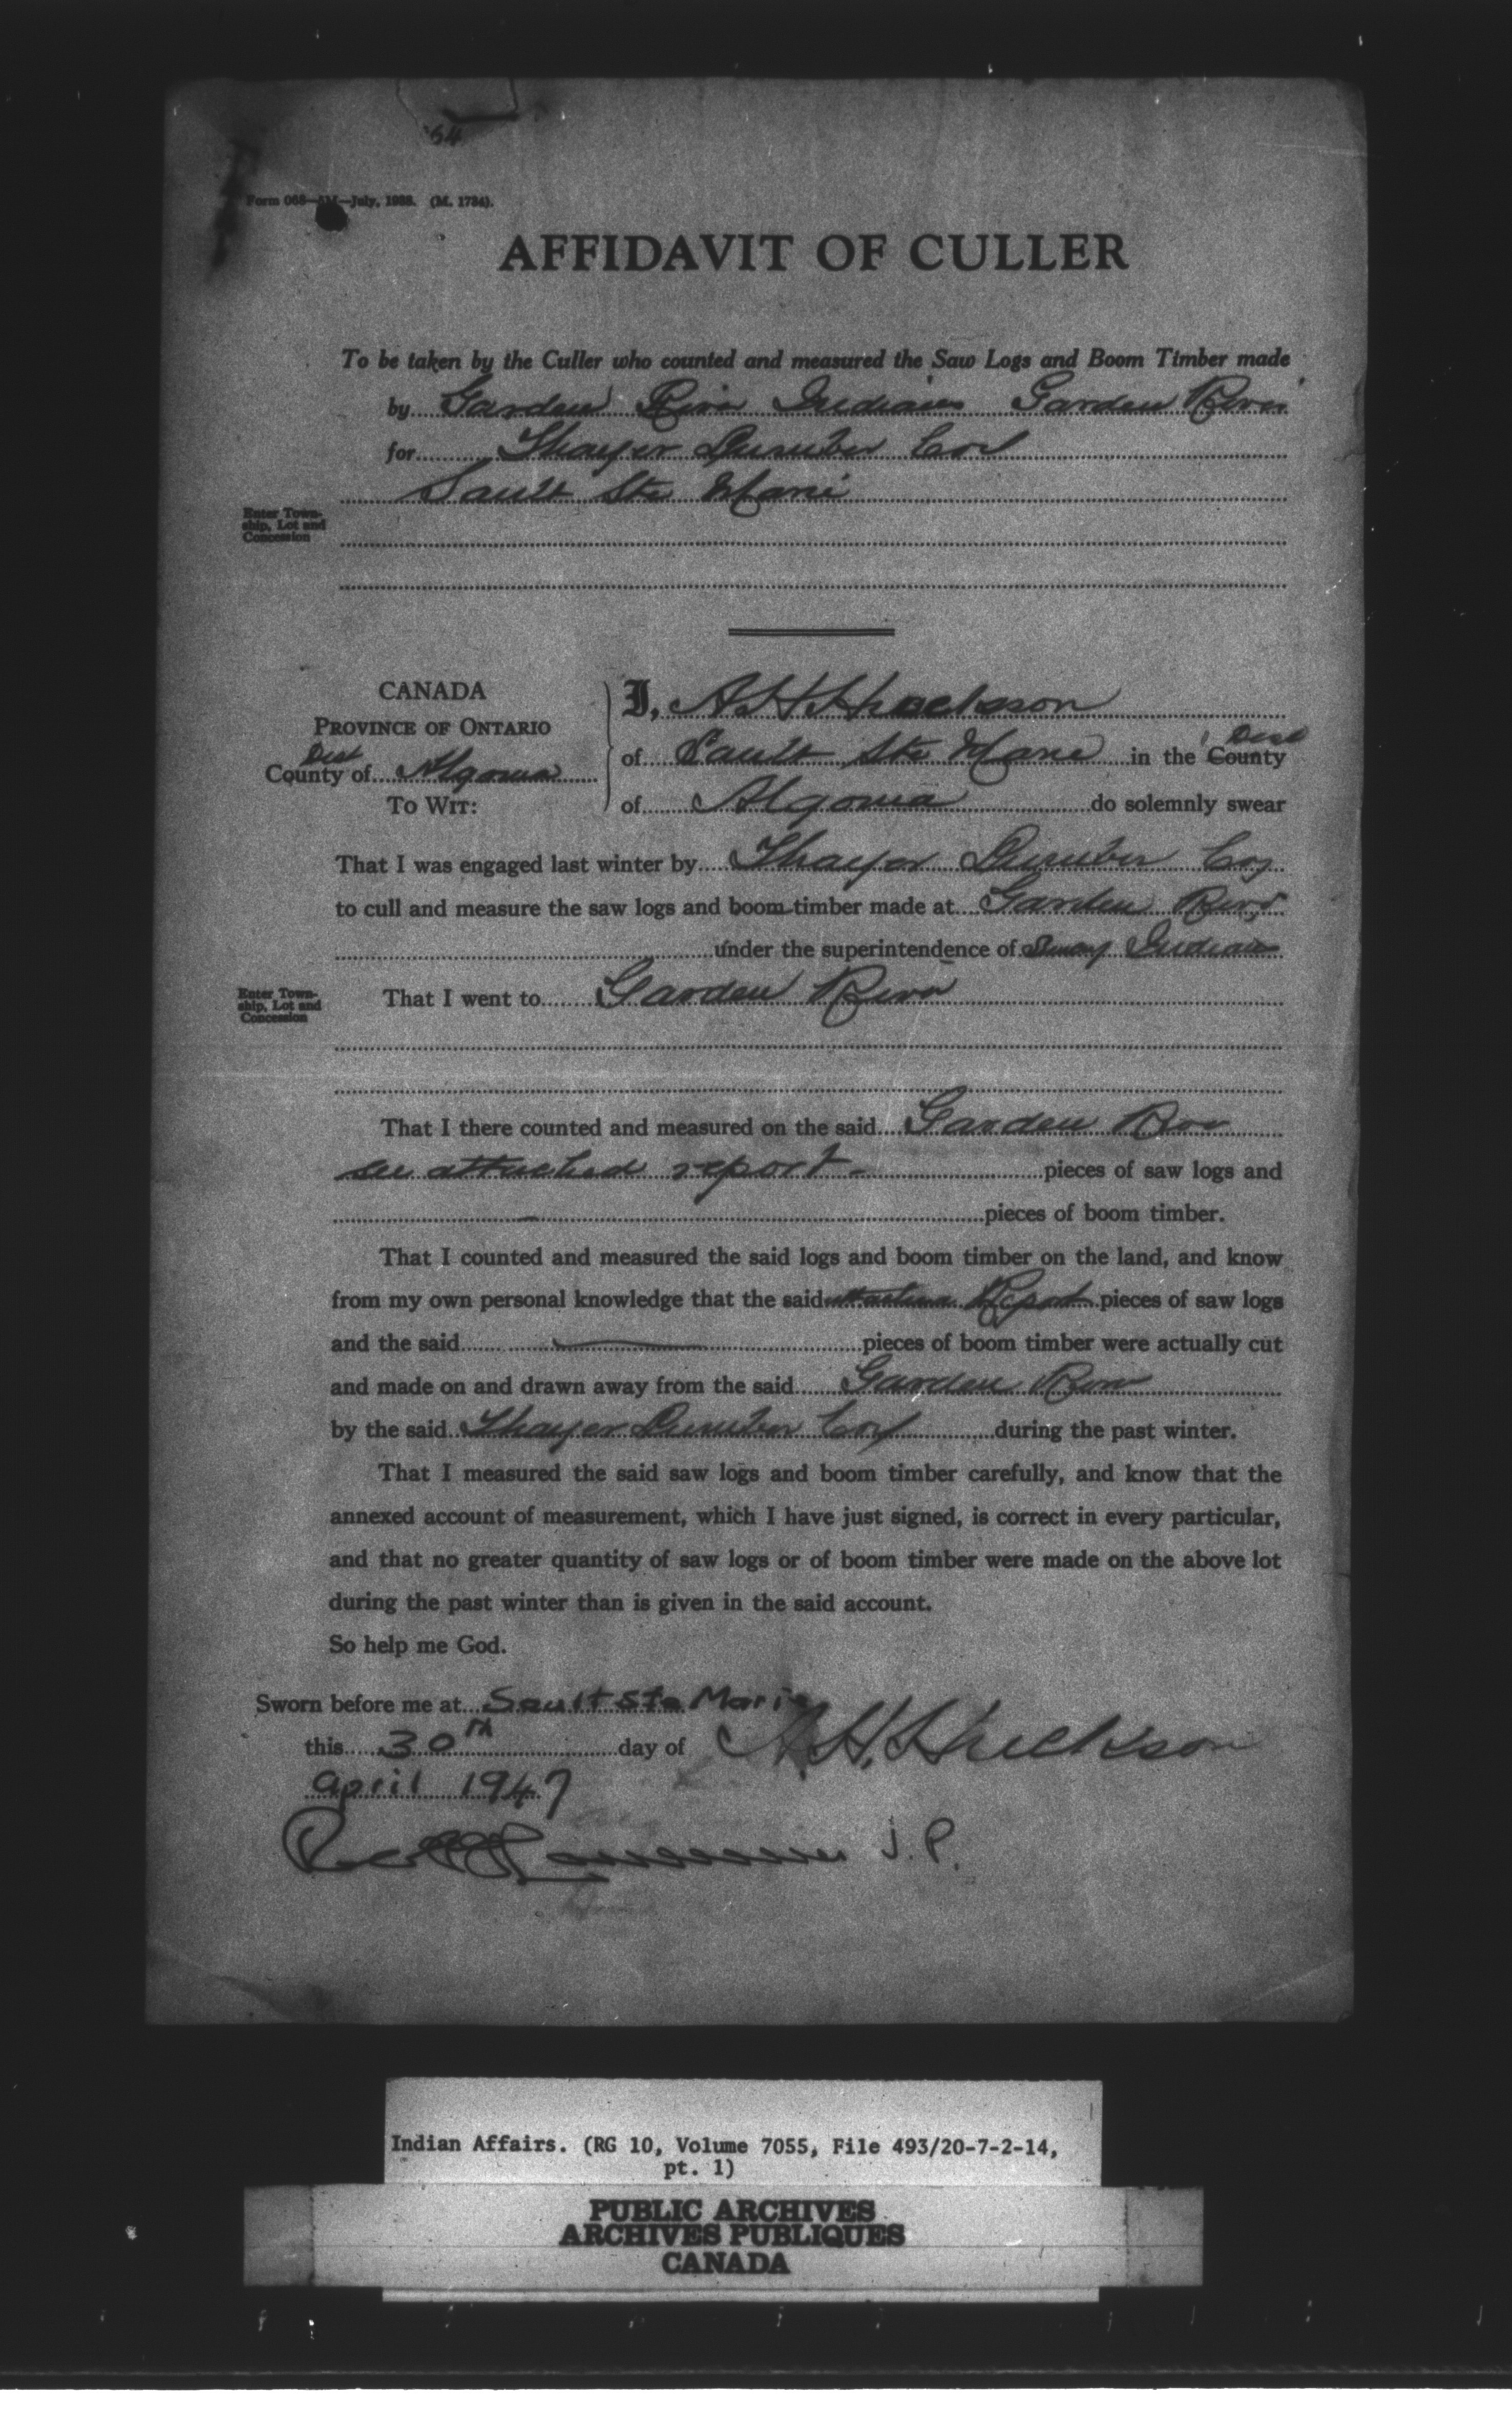 54
Form 068—AM—July, 1938. (M. 1734).
AFFIDAVIT OF CULLER
To be taken by the Culler who counted and measured the Saw Logs and Boom Timber made
by Garden River Indians Garden River
for Thayer Lumber Coy
Sault Ste Marie
Enter Town-
ship, Lot and
Concession
CANADA
PROVINCE OF ONTARIO
Dist
County of Algoma
TO WIT:
I, A H
of Sault Ste Marie in the County Dist
of Algoma do solemnly swear
That I was engaged last winter by Thayer Lumber Coy
to cull and measure the saw logs and boom timber made at Garden River
under the superintendence of Indians
Enter Town-
ship, Lot and
Concession
That I went to Garden River
That I there counted and measured on the said Garden River
see attached report - pieces of saw logs and
pieces of boom timber.
That I counted and measured the said logs and boom timber on the land, and know
from my own personal knowledge that the said Report pieces of saw logs
and the said pieces of boom timber were actually cut
and made on and drawn away from the said Garden River
by the said Thayer Lumber Coy during the past winter.
That I measured the said saw logs and boom timber carefully, and know that the
annexed account of measurement, which I have just signed, is correct in every particular,
and that no greater quantity of saw logs or of boom timber were made on the above lot
during the past winter than is given in the said account.
So help me God.
Sworn before me at Sault Ste Marie
this 30th day of A. H.
April 1947
J. P.
Indian Affairs. (RG 10, Volume 7055, File 493/20-7-2-14,
pt. 1)
PUBLIC ARCHIVES
ARCHIVES PUBLIQUES
CANADA